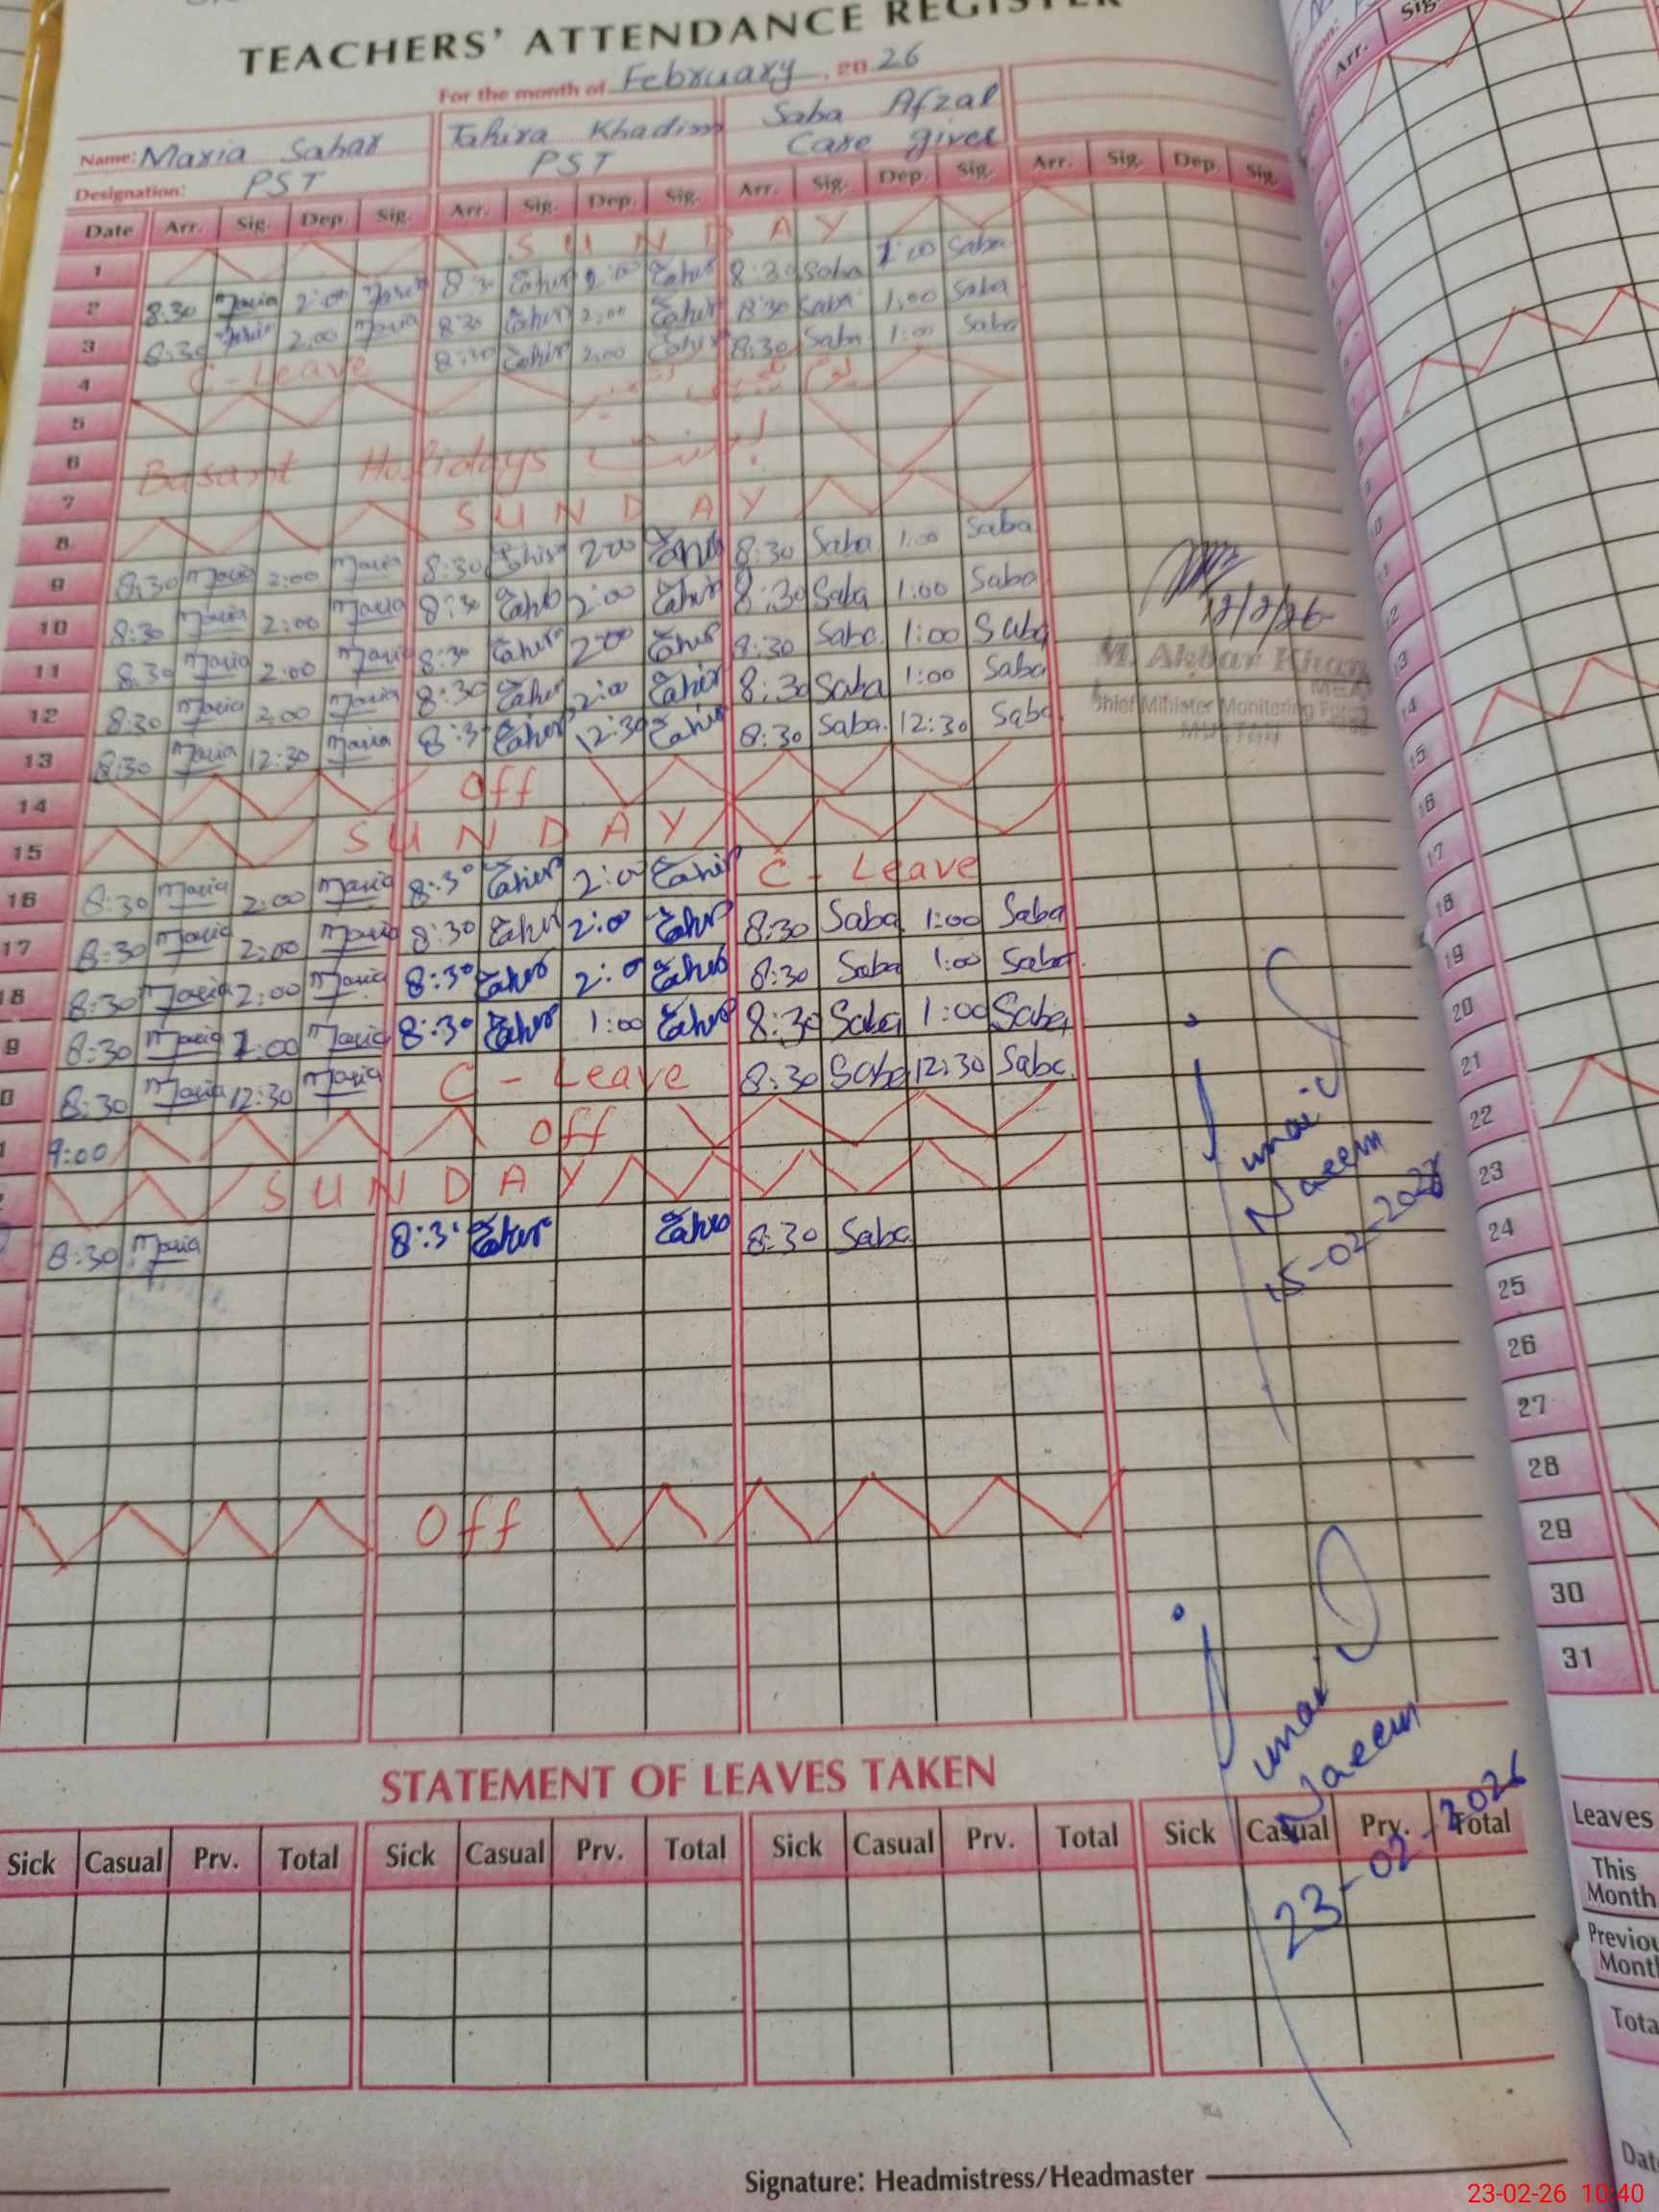 TEACHERS' ATTENDANCE REGISTER
For the month of February, 2026
Name: Maria Sahar Tahira Khadim Saba Afzal
Designation: PST PST Care giver
Date Arr. Sig. Dep. Sig. Arr. Sig. Dep. Sig. Arr. Sig. Dep. Sig. Arr. Sig. Dep. Sig.
1 SUNDAY
2 8:30 Maria 2:00 Maria 8:30 Tahir 2:00 Tahir 8:30 Saba 1:00 Saba
3 8:30 Maria 2:00 Maria 8:30 Tahir 2:00 Tahir 8:30 Saba 1:00 Saba
4 C-Leave 8:30 Tahir 2:00 Tahir 8:30 Saba 1:00 Saba
5 یوم کشمیر
6
7 Basant Holidays بسنت
8 SUNDAY
9 8:30 Maria 2:00 Maria 8:30 Tahir 2:00 Tahir 8:30 Saba 1:00 Saba
10 8:30 Maria 2:00 Maria 8:30 Tahir 2:00 Tahir 8:30 Saba 1:00 Saba
11 8:30 Maria 2:00 Maria 8:30 Tahir 2:00 Tahir 8:30 Saba 1:00 Saba
12 8:30 Maria 2:00 Maria 8:30 Tahir 2:00 Tahir 8:30 Saba 1:00 Saba
13 8:30 Maria 12:30 Maria 8:30 Tahir 12:30 Tahir 8:30 Saba 12:30 Saba
14 Off
15 SUNDAY
16 8:30 Maria 2:00 Maria 8:30 Tahir 2:00 Tahir C-Leave
17 8:30 Maria 2:00 Maria 8:30 Tahir 2:00 Tahir 8:30 Saba 1:00 Saba
18 8:30 Maria 2:00 Maria 8:30 Tahir 2:00 Tahir 8:30 Saba 1:00 Saba
9 8:30 Maria 1:00 Maria 8:30 Tahir 1:00 Tahir 8:30 Saba 1:00 Saba
0 8:30 Maria 12:30 Maria C-Leave 8:30 Saba 12:30 Saba
1 9:00 Off
SUNDAY
8:30 Maria 8:30 Tahir Tahir 8:30 Saba
Off
12/2/26
M. Akbar Khan
MEA
Chief Minister Monitering Force
MULTAN
Umair
Naeem
15-02-2026
Umair
Naeem
23-02-2026
STATEMENT OF LEAVES TAKEN
Sick Casual Prv. Total Sick Casual Prv. Total Sick Casual Prv. Total Sick Casual Prv. Total
Signature: Headmistress/Headmaster
Sig.
Arr.
12
13
14
15
16
17
18
19
20
21
22
23
24
25
26
27
28
29
30
31
Leaves
This
Month
23-02-26 10:40